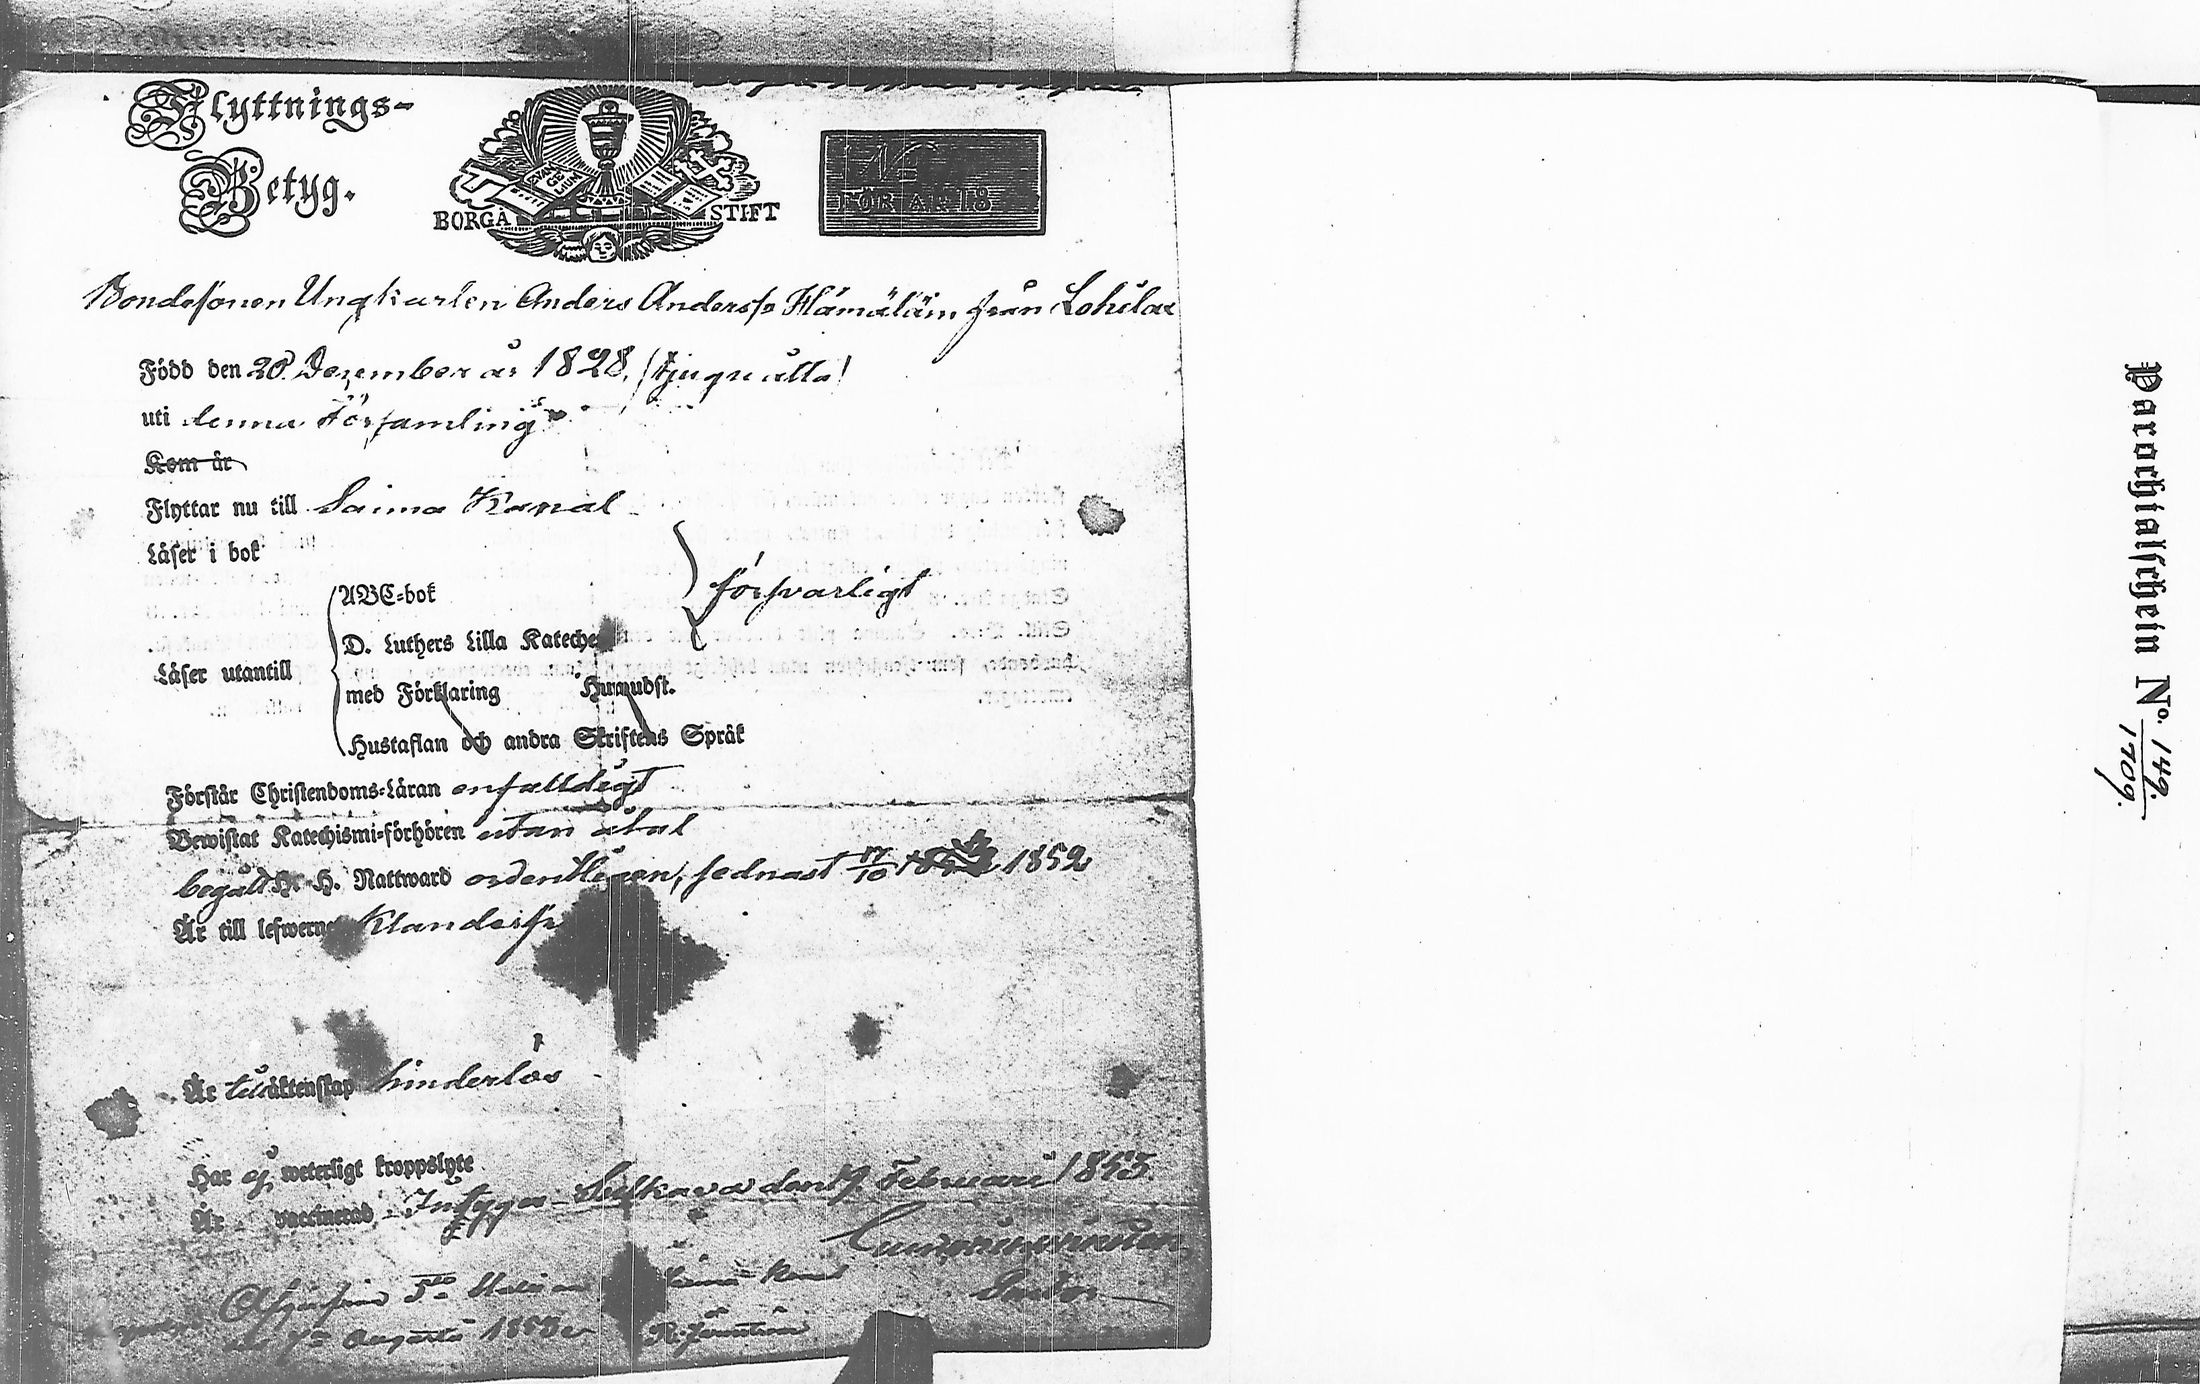 Flyttnings-
Betyg.
EVAN
GE
LIUM
BORGÅ STIFT
FÖR ÅR 18
Bondesonen Ungkarlen Anders Anderss. Hämäläin från Lohilax
Född den 28. Dezember år 1828. /tjugu åtta/
uti denna Församling
Kom år
Flyttar nu till Saima Kanal
Läser i bok
försvarligt
Läser utantill
ABC-bok
D. Luthers Lilla Kateches
med Förklaring Huvudst.
Hustaflan och andra Skriftens Språk
Förstår Christendoms-Läran enfaldigt
Bewistat Katechismi-förhören utan åtal
begått H. H. Nattward ordentligen, sednast 17/10 1852
Är till lefwerne Klanderfr
Är till äktenskap hinderlös
Har ej weterligt kroppslyte
Är vaccinerad Intygar Sulkava den 19 Februari 1853.
Pastor
den Augusti 1853
Parochialschein No. 149.
1709.